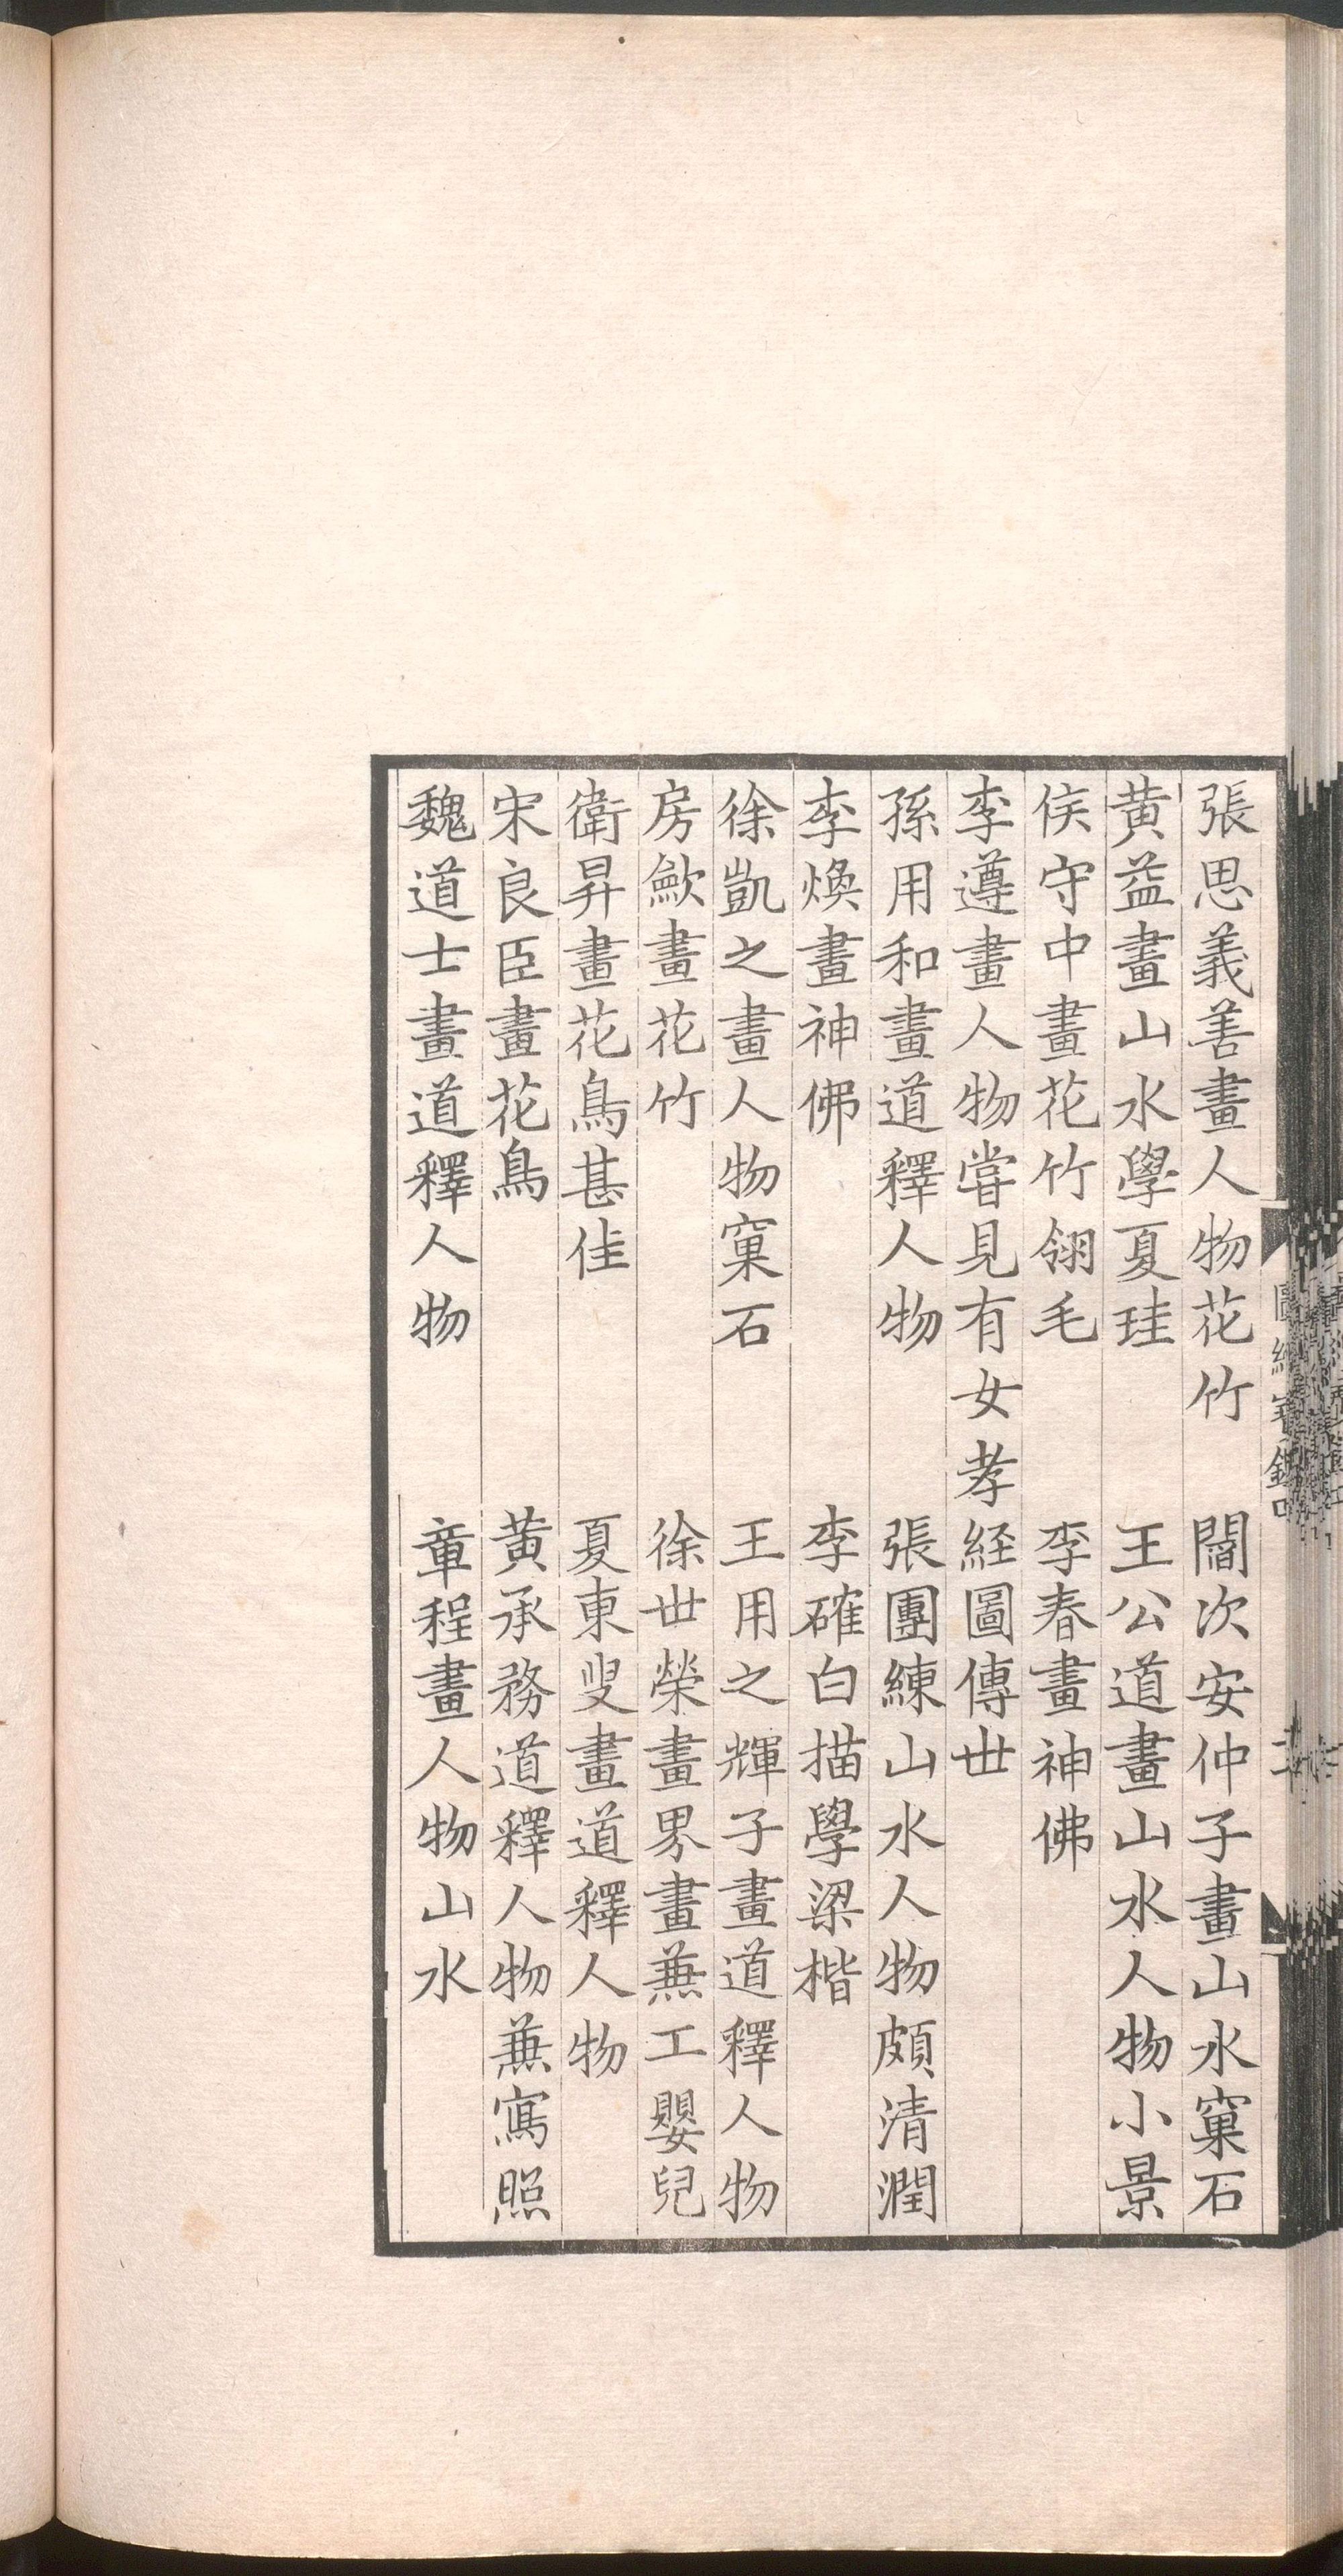 張思義善畫人物花竹　閻次安仲子畫山水窠石
黃益畫山水學夏珪　王公道畫山水人物小景
侯守中畫花竹翎毛　李春畫神佛
李遵畫人物嘗見有女孝經圖傳世
孫用和畫道釋人物　張團練山水人物頗清潤
李煥畫神佛　李確白描學梁楷
徐凱之畫人物窠石　王用之輝子畫道釋人物
房歛畫花竹　徐世榮畫界畫蕪工嬰兒
衛昇畫花鳥甚佳　夏東叟畫道釋人物
宋良臣畫花鳥　黃承務道釋人物蕪寫照
魏道士畫道釋人物　章程畫人物山水
圖繪寶鑑